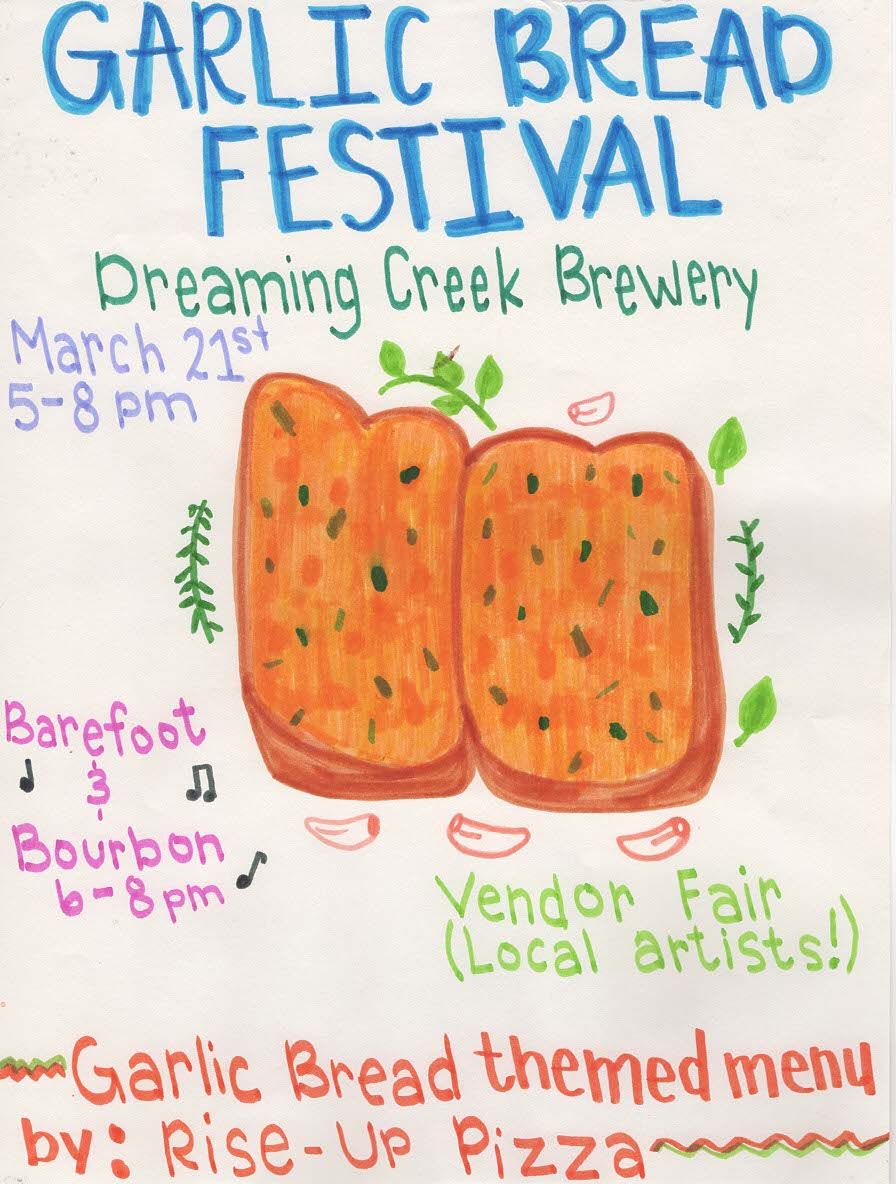 GARLIC BREAD
FESTIVAL
Dreaming Creek Brewery
March 21st
5-8 pm
Barefoot
&
Bourbon
6-8pm
Vendor Fair
(Local artists!)
Garlic Bread themed menu
by: Rise-Up Pizza